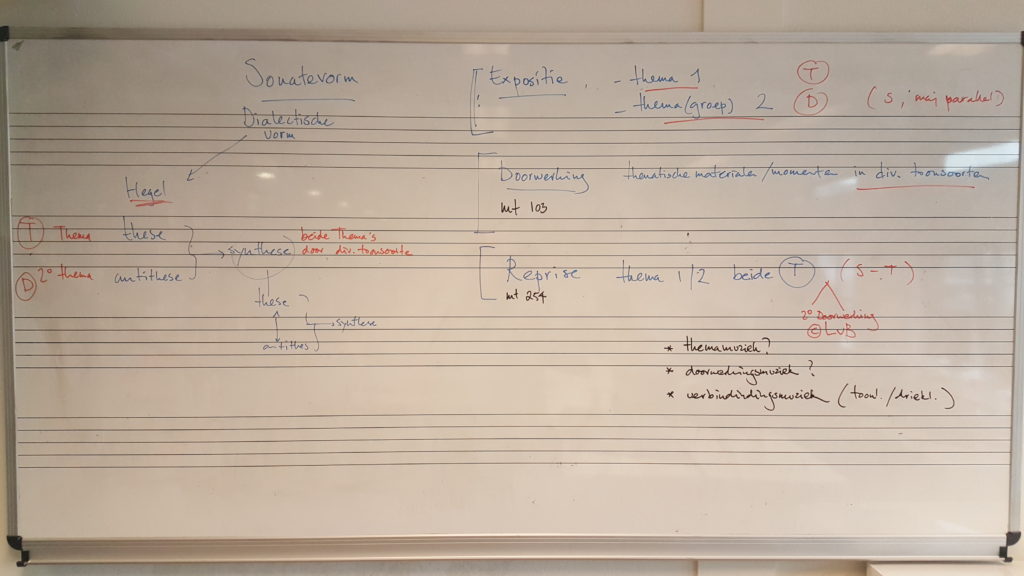 Sonatevorm
Dialectische
vorm
Hegel
T Thema these
D 2e thema antithese
synthese
beide Thema's
door div. toonsoorte
these
antithes
synthese
Expositie - thema 1 T
- thema(groep) 2 D (S, maj parallel)
Doorwerking thematische materialen/momenten in div. toonsoorten
mt 103
Reprise thema 1/2 beide T (S - T)
mt 254
2e Doorwerking
© LvB
* themamuziek?
* doorwerkingsmuziek?
* verbindindingsmuziek (toonl./driekl.)